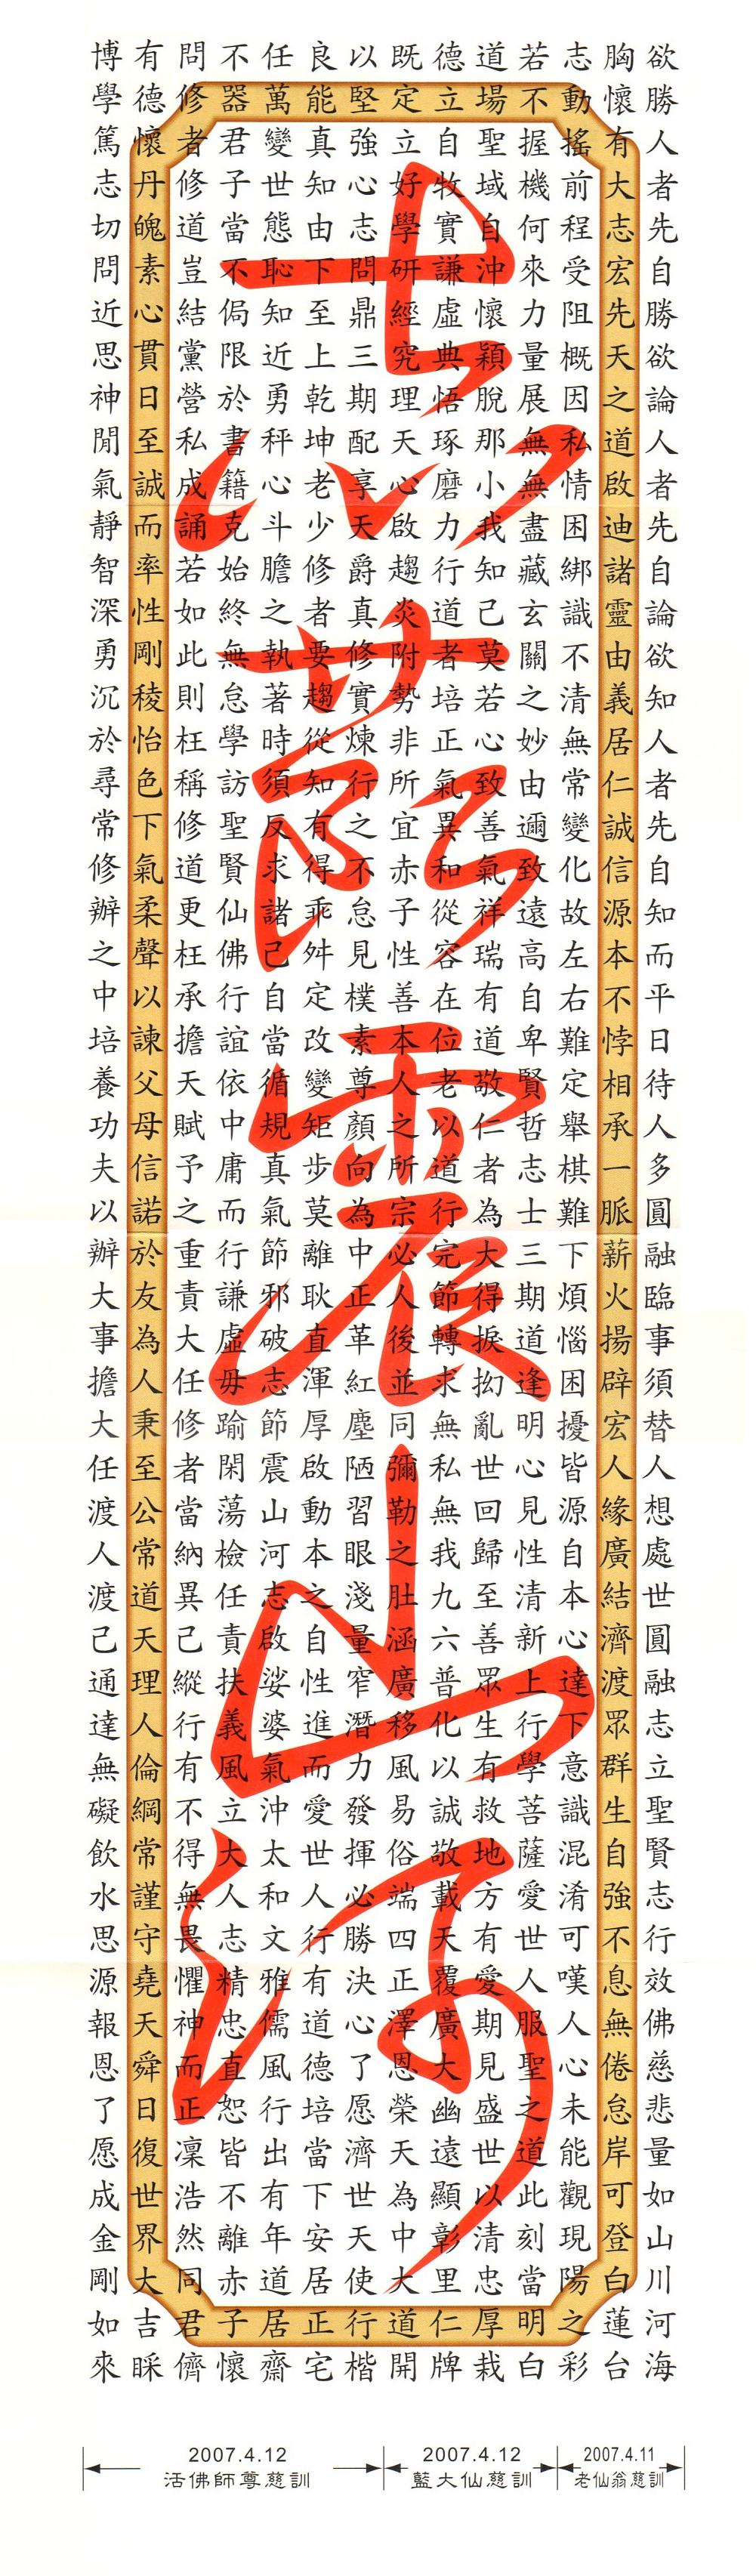 欲勝人者先自勝欲論人者先自論欲知人者先自知而平日待人多圓融臨事須替人想處世圓融志立聖賢志行效佛慈悲量如山川河海
胸懷有大志宏先天之道啟迪諸靈由義居仁誠信源本不悖相承一脈薪火揚辟宏人緣廣結濟渡眾群生自強不息無倦怠岸可登白蓮台
志動搖前程受阻概因私情困綁識不清無常變化故左右難定舉棋難下煩惱困擾皆源自本心達下意識混淆可嘆人心未能觀現陽之彩
若不握機何來力量展無無盡藏玄關之妙由邇致遠高自卑賢哲志士三期道逢明心見性清新上行學菩薩愛世人服聖之道此刻當明白
道場聖域自沖懷穎脫那小我知己莫若心致善氣祥瑞有道敬仁者為大得捩拗亂世回歸至善眾生有救地方有愛期見盛世以清忠厚栽
德立自牧實謙虛典悟琢磨力行道者培正氣異和從容在位老以道行完節轉求無私無我九六普化以誠敬載天覆廣大幽遠顯彰里仁牌
既定立好學研經究理天心啟趨炎附勢非所宜赤子性善本人之所宗必人後並同彌勒之肚涵廣移風易俗端四正澤恩榮天為中大道開
以堅強心志問鼎三期配享天爵真修實煉行之不怠見樸素尊顏向為中正革紅塵陋習眼淺量窄潛力發揮必勝決心了愿濟世天使行楷
良能真知由下至上乾坤老少修者要趨從知有得乖舛定改變矩步莫離耿直渾厚啟動本之自性進而愛世人行有道德培當下安居正宅
任萬變世態恥知近勇秤心斗膽之執著時須反求諸己自當循規真氣節邪破志節震山河志啟娑婆氣沖太和文雅儒風行出有年道居齋
不器君子當不侷限於書籍克始終無怠學訪聖賢仙佛行誼依中庸而行謙虛毋踰閑蕩檢任責扶義風立大人志精忠直恕皆不離赤子懷
問修者修道豈結黨營私成誦若如此則枉稱修道更枉承擔天賦予之重責大任修者當納異己縱行有不得無畏懼神而正凜浩然同君儕
有德懷丹魄素心貫日至誠而率性剛稜怡色下氣柔聲以諫父母信諾於友為人秉至公常道天理人倫綱常謹守堯天舜日復世界大吉睬
博學篤志切問近思神閒氣靜智深勇沉於尋常修辦之中培養功夫以辦大事擔大任渡人渡己通達無礙飲水思源報恩了愿成金剛如來
志節震山河
2007.4.12
活佛師尊慈訓
2007.4.12
藍大仙慈訓
2007.4.11
老仙翁慈訓